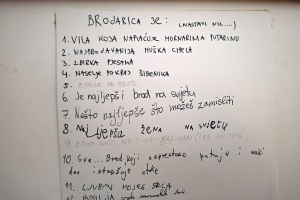 BRODARICA JE: (NASTAVI NIZ....)
1. VILA KOJA NAPLAĆUJE MORNARIMA PUTARINU
2. NAJPRODAVANIJA MUŠKA CIPELA
3. ZBIRKA PJESAMA
4. NASELJE POKRAJ ŠIBENIKA
5.
6. Je najljepši brod na svijetu
7. Nešto najljepše što možeš zamisliti
8. Najljepša žena na svijetu
9. BROD KOJI NE TONE
10. Sve... Brod koji neprestano putuje i
dan istražuje otoke
11. LJUBAV MOJEG SRCA
12.